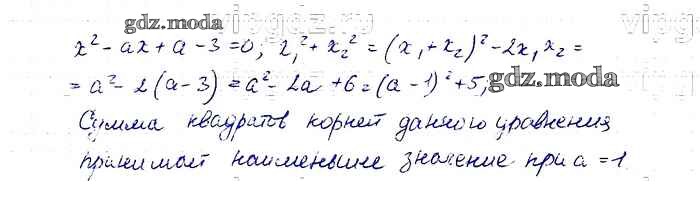 gdz.moda
x² - ax + a - 3 = 0; x₁² + x₂² = (x₁ + x₂)² - 2x₁x₂ =
= a² - 2(a - 3) = a² - 2a + 6 = (a - 1)² + 5;
gdz.moda
Сумма квадратов корней данного уравнения
принимает наименьшее значение при a = 1.
gdz.moda